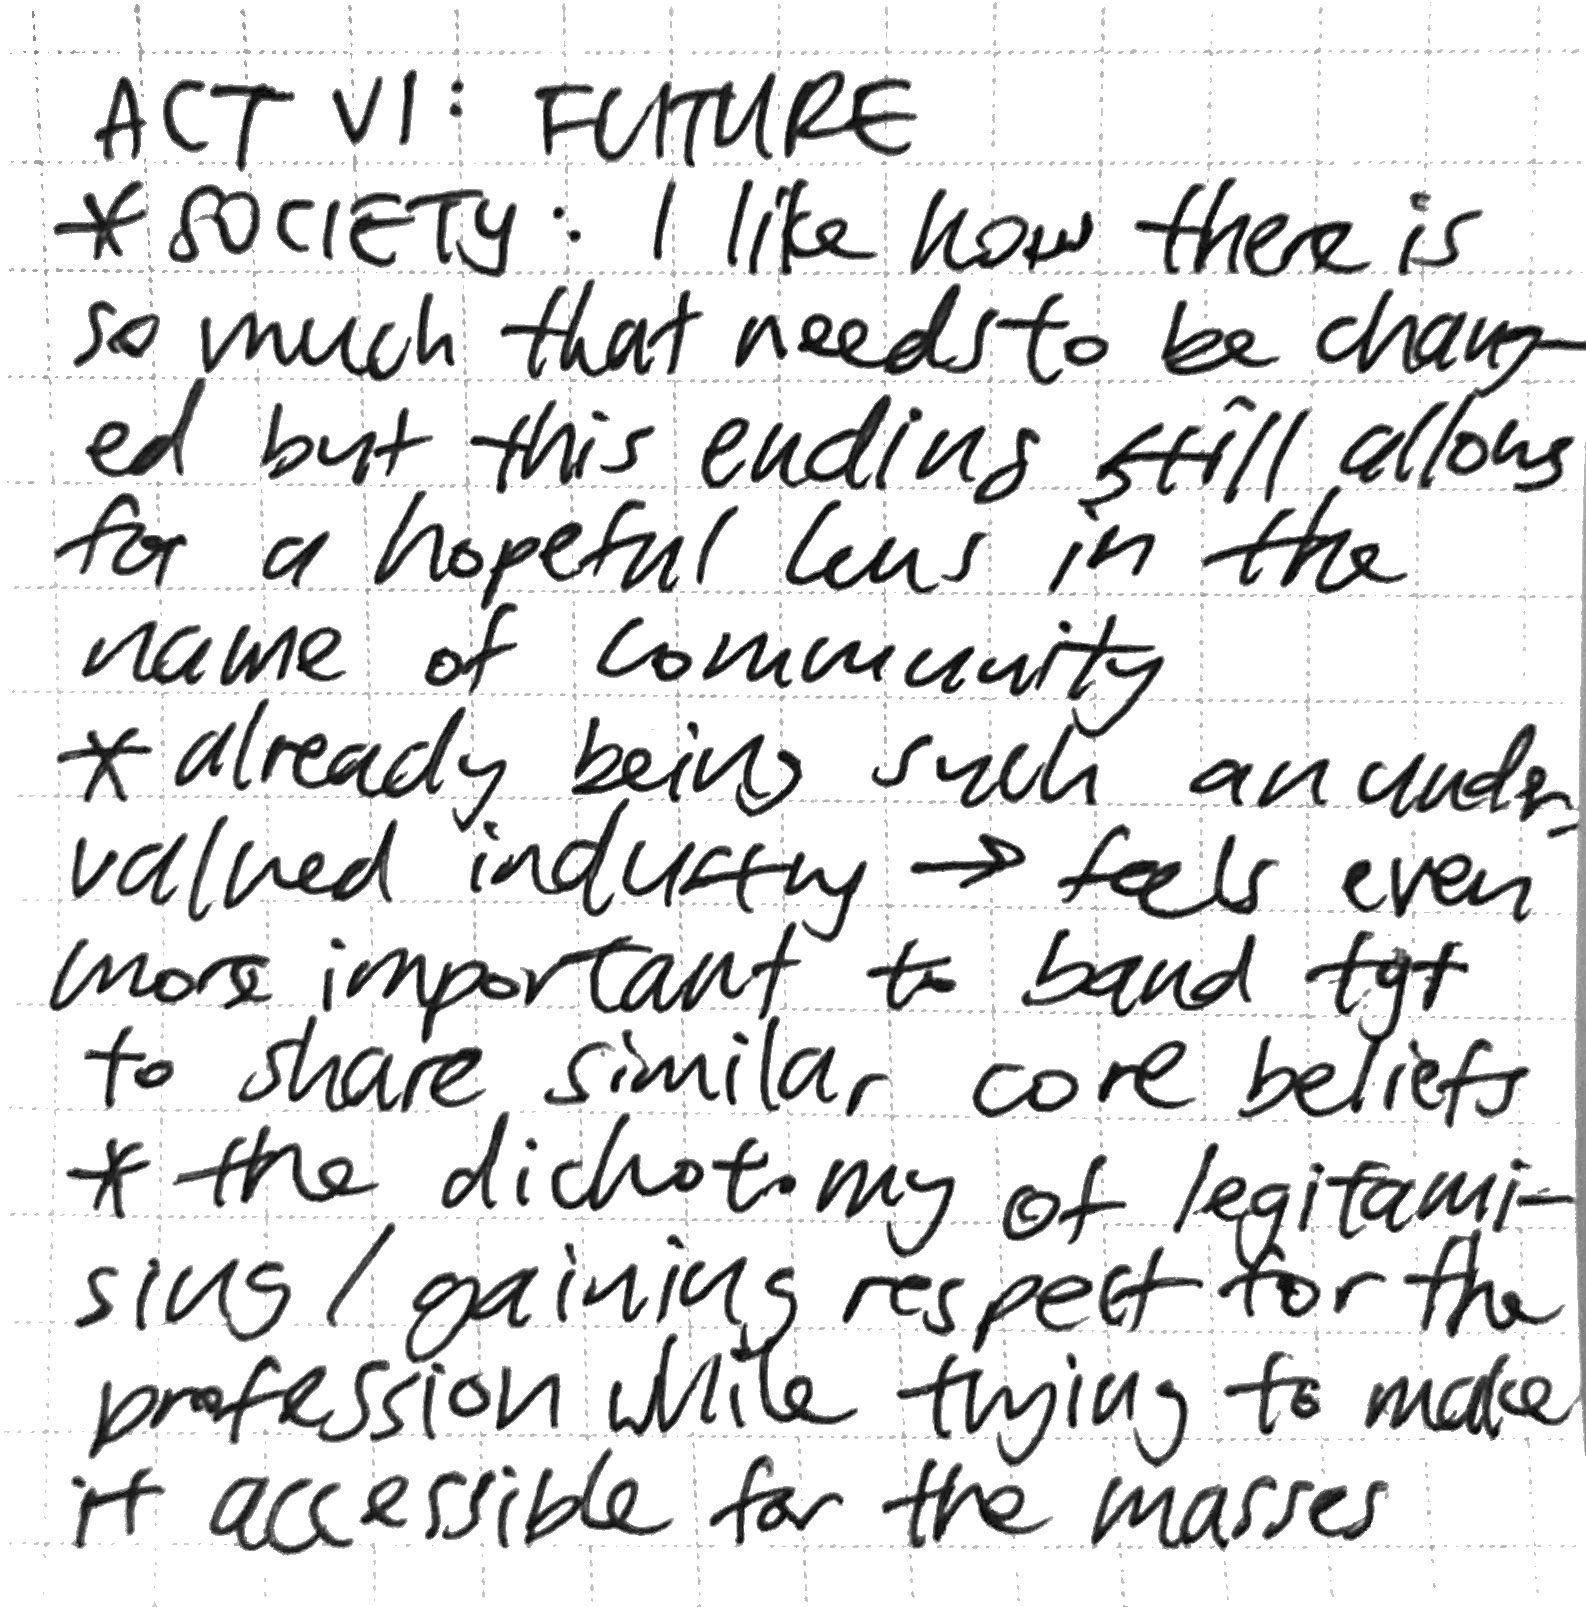 ACT VI: FUTURE
* SOCIETY: I like how there is
so much that needs to be chang-
ed but this ending still allows
for a hopeful lens in the
name of community
* already being such an under-
valued industry → feels even
more important to band tgt
to share similar core beliefs
* the dichotomy of legitami-
sing / gaining respect for the
profession while trying to make
it accessible for the masses